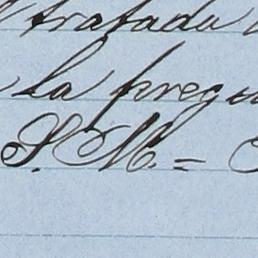 tratada
la pregu
S. M. =